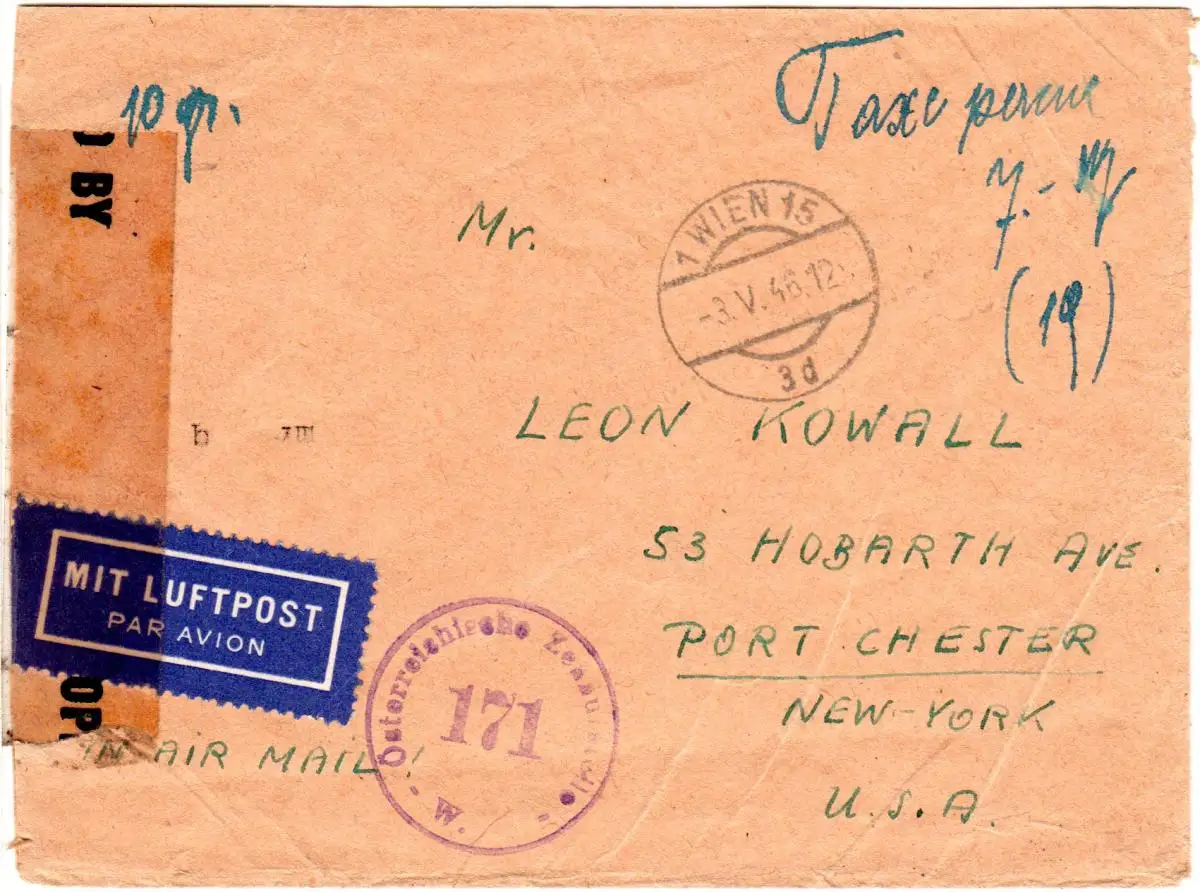 10 gr.
Taxe percue
7.-
(19)
BY
Mr.
1 WIEN 15
-3.V.46.12
3d
LEON KOWALL
b
53 HOBARTH AVE.
MIT LUFTPOST
PAR AVION
PORT CHESTER
NEW-YORK
U.S.A.
OP
IN AIR MAIL!
Österreichische Zensurstelle
171
W.